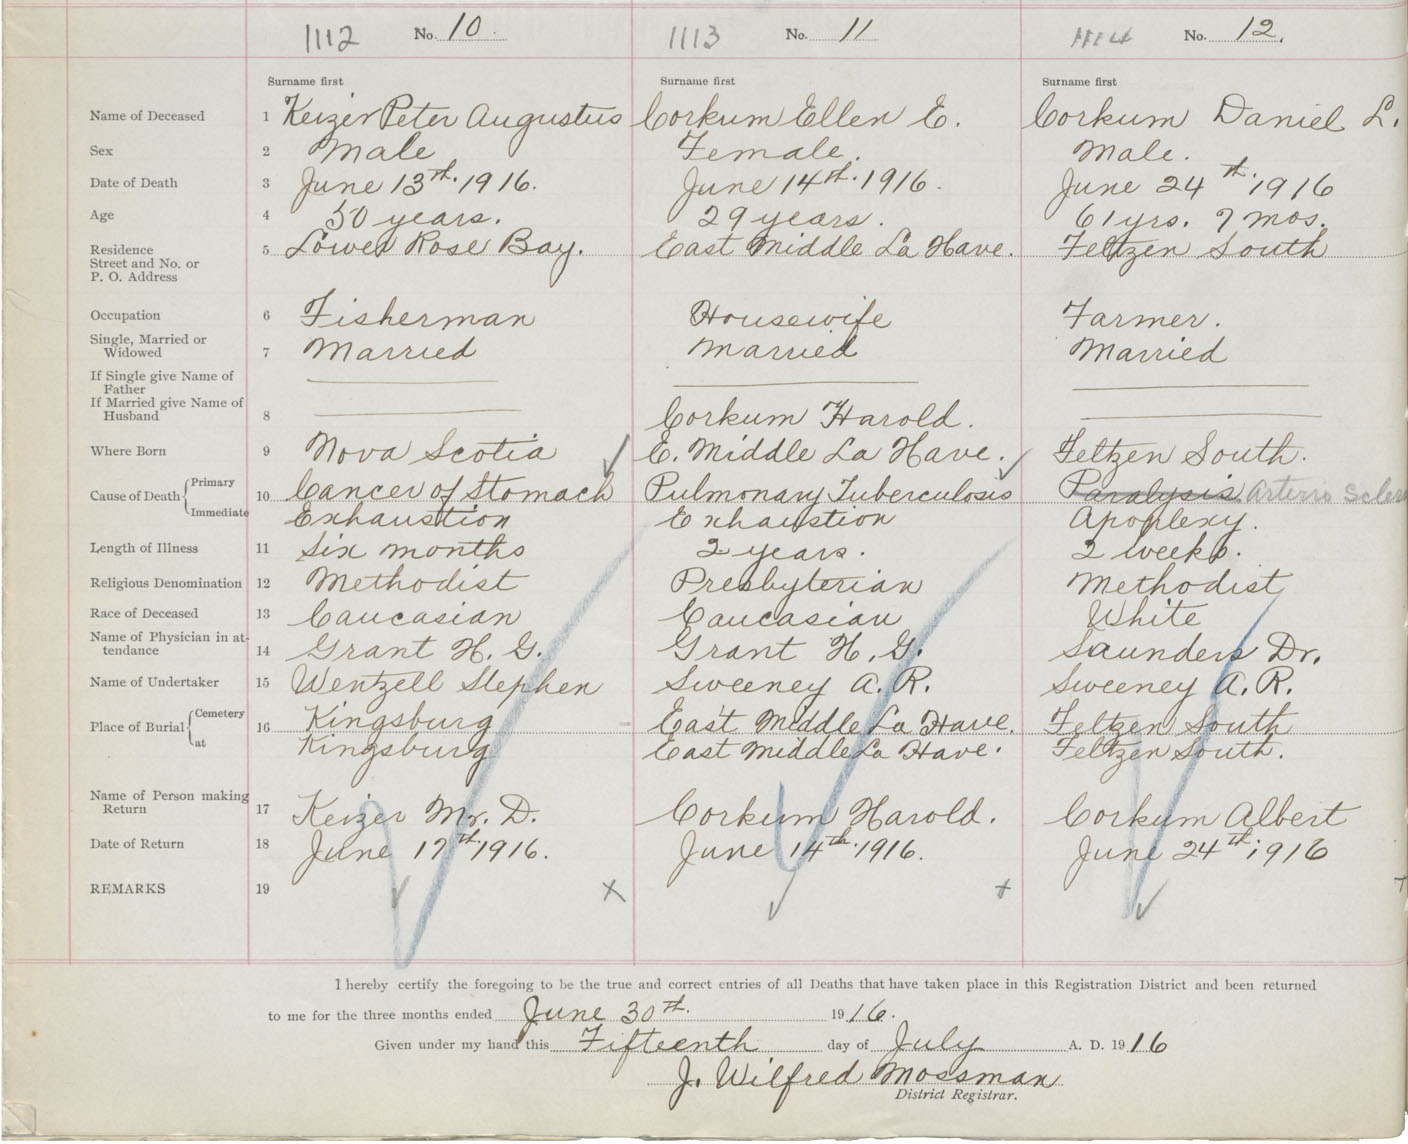 1112 No. 10. 1113 No. 11 1114 No. 12.
Surname first Surname first Surname first
Name of Deceased 1 Keizer Peter Augustus Corkum Ellen E. Corkum Daniel L.
Sex 2 Male Female. Male.
Date of Death 3 June 13th. 1916. June 14th. 1916. June 24th. 1916
Age 4 50 years. 29 years. 61 yrs. 7 mos.
Residence 5 Lower Rose Bay. East Middle La Have. Feltzen South
Street and No. or
P. O. Address
Occupation 6 Fisherman Housewife Farmer.
Single, Married or
Widowed 7 Married Married Married
If Single give Name of
Father
If Married give Name of
Husband 8 Corkum Harold.
Where Born 9 Nova Scotia E. Middle La Have. Feltzen South.
Primary
Cause of Death 10 Cancer of Stomach Pulmonary Tuberculosis Paralysis Arterio Scler
Immediate Exhaustion Exhaustion Apoplexy.
Length of Illness 11 Six months 2 years. 2 weeks.
Religious Denomination 12 Methodist Presbyterian Methodist
Race of Deceased 13 Caucasian Caucasian White
Name of Physician in at-
tendance 14 Grant H. G. Grant H. G. Saunders Dr.
Name of Undertaker 15 Wentzell Stephen Sweeney A. R. Sweeney A. R.
Cemetery
Place of Burial 16 Kingsburg East Middle La Have. Feltzen South
at Kingsburg East Middle La Have. Feltzen South.
Name of Person making
Return 17 Keizer Mr. D. Corkum Harold. Corkum Albert
Date of Return 18 June 17th, 1916. June 14th. 1916. June 24th, 1916
REMARKS 19
I hereby certify the foregoing to be the true and correct entries of all Deaths that have taken place in this Registration District and been returned
to me for the three months ended June 30th. 1916.
Given under my hand this Fifteenth day of July A. D. 1916
J. Wilfred Mossman
District Registrar.